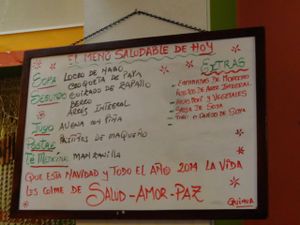 EL MENÚ SALUDABLE DE HOY
SOPA LOCRO DE NABO
SEGUNDO CROQUETA DE PAPA
GUISADO DE ZAPALLO
BERRO
ARROZ INTEGRAL
JUGO AVENA CON PIÑA
POSTRE PASTELITOS DE MAQUEÑO
TÉ MEDICINAL MANZANILLA
EXTRAS
EMPANADAS DE MOROCHO
ROLLOS DE ARROZ INTEGRAL
Y VEGETALES
SALSA DE SOYA
TOFU O QUESO DE SOYA
QUE ESTA NAVIDAD Y TODO EL AÑO 2014 LA VIDA
LES COLME DE SALUD - AMOR - PAZ